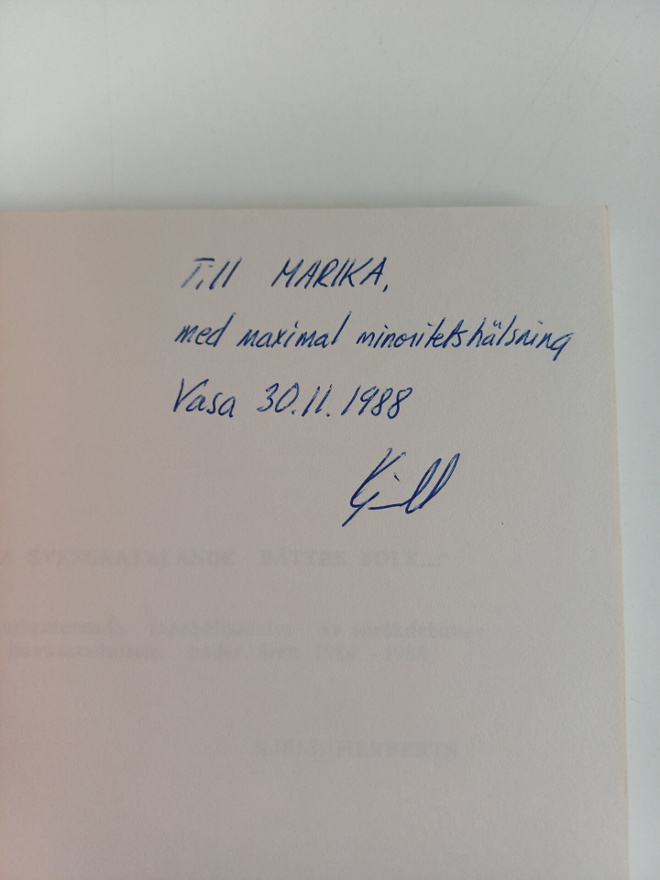 Till MARIKA,
med maximal minoritetshälsning
Vasa 30.11.1988
Kjell
SVENSKATALANDE BÄTTRE FOLK...
KJELL HERBERTS